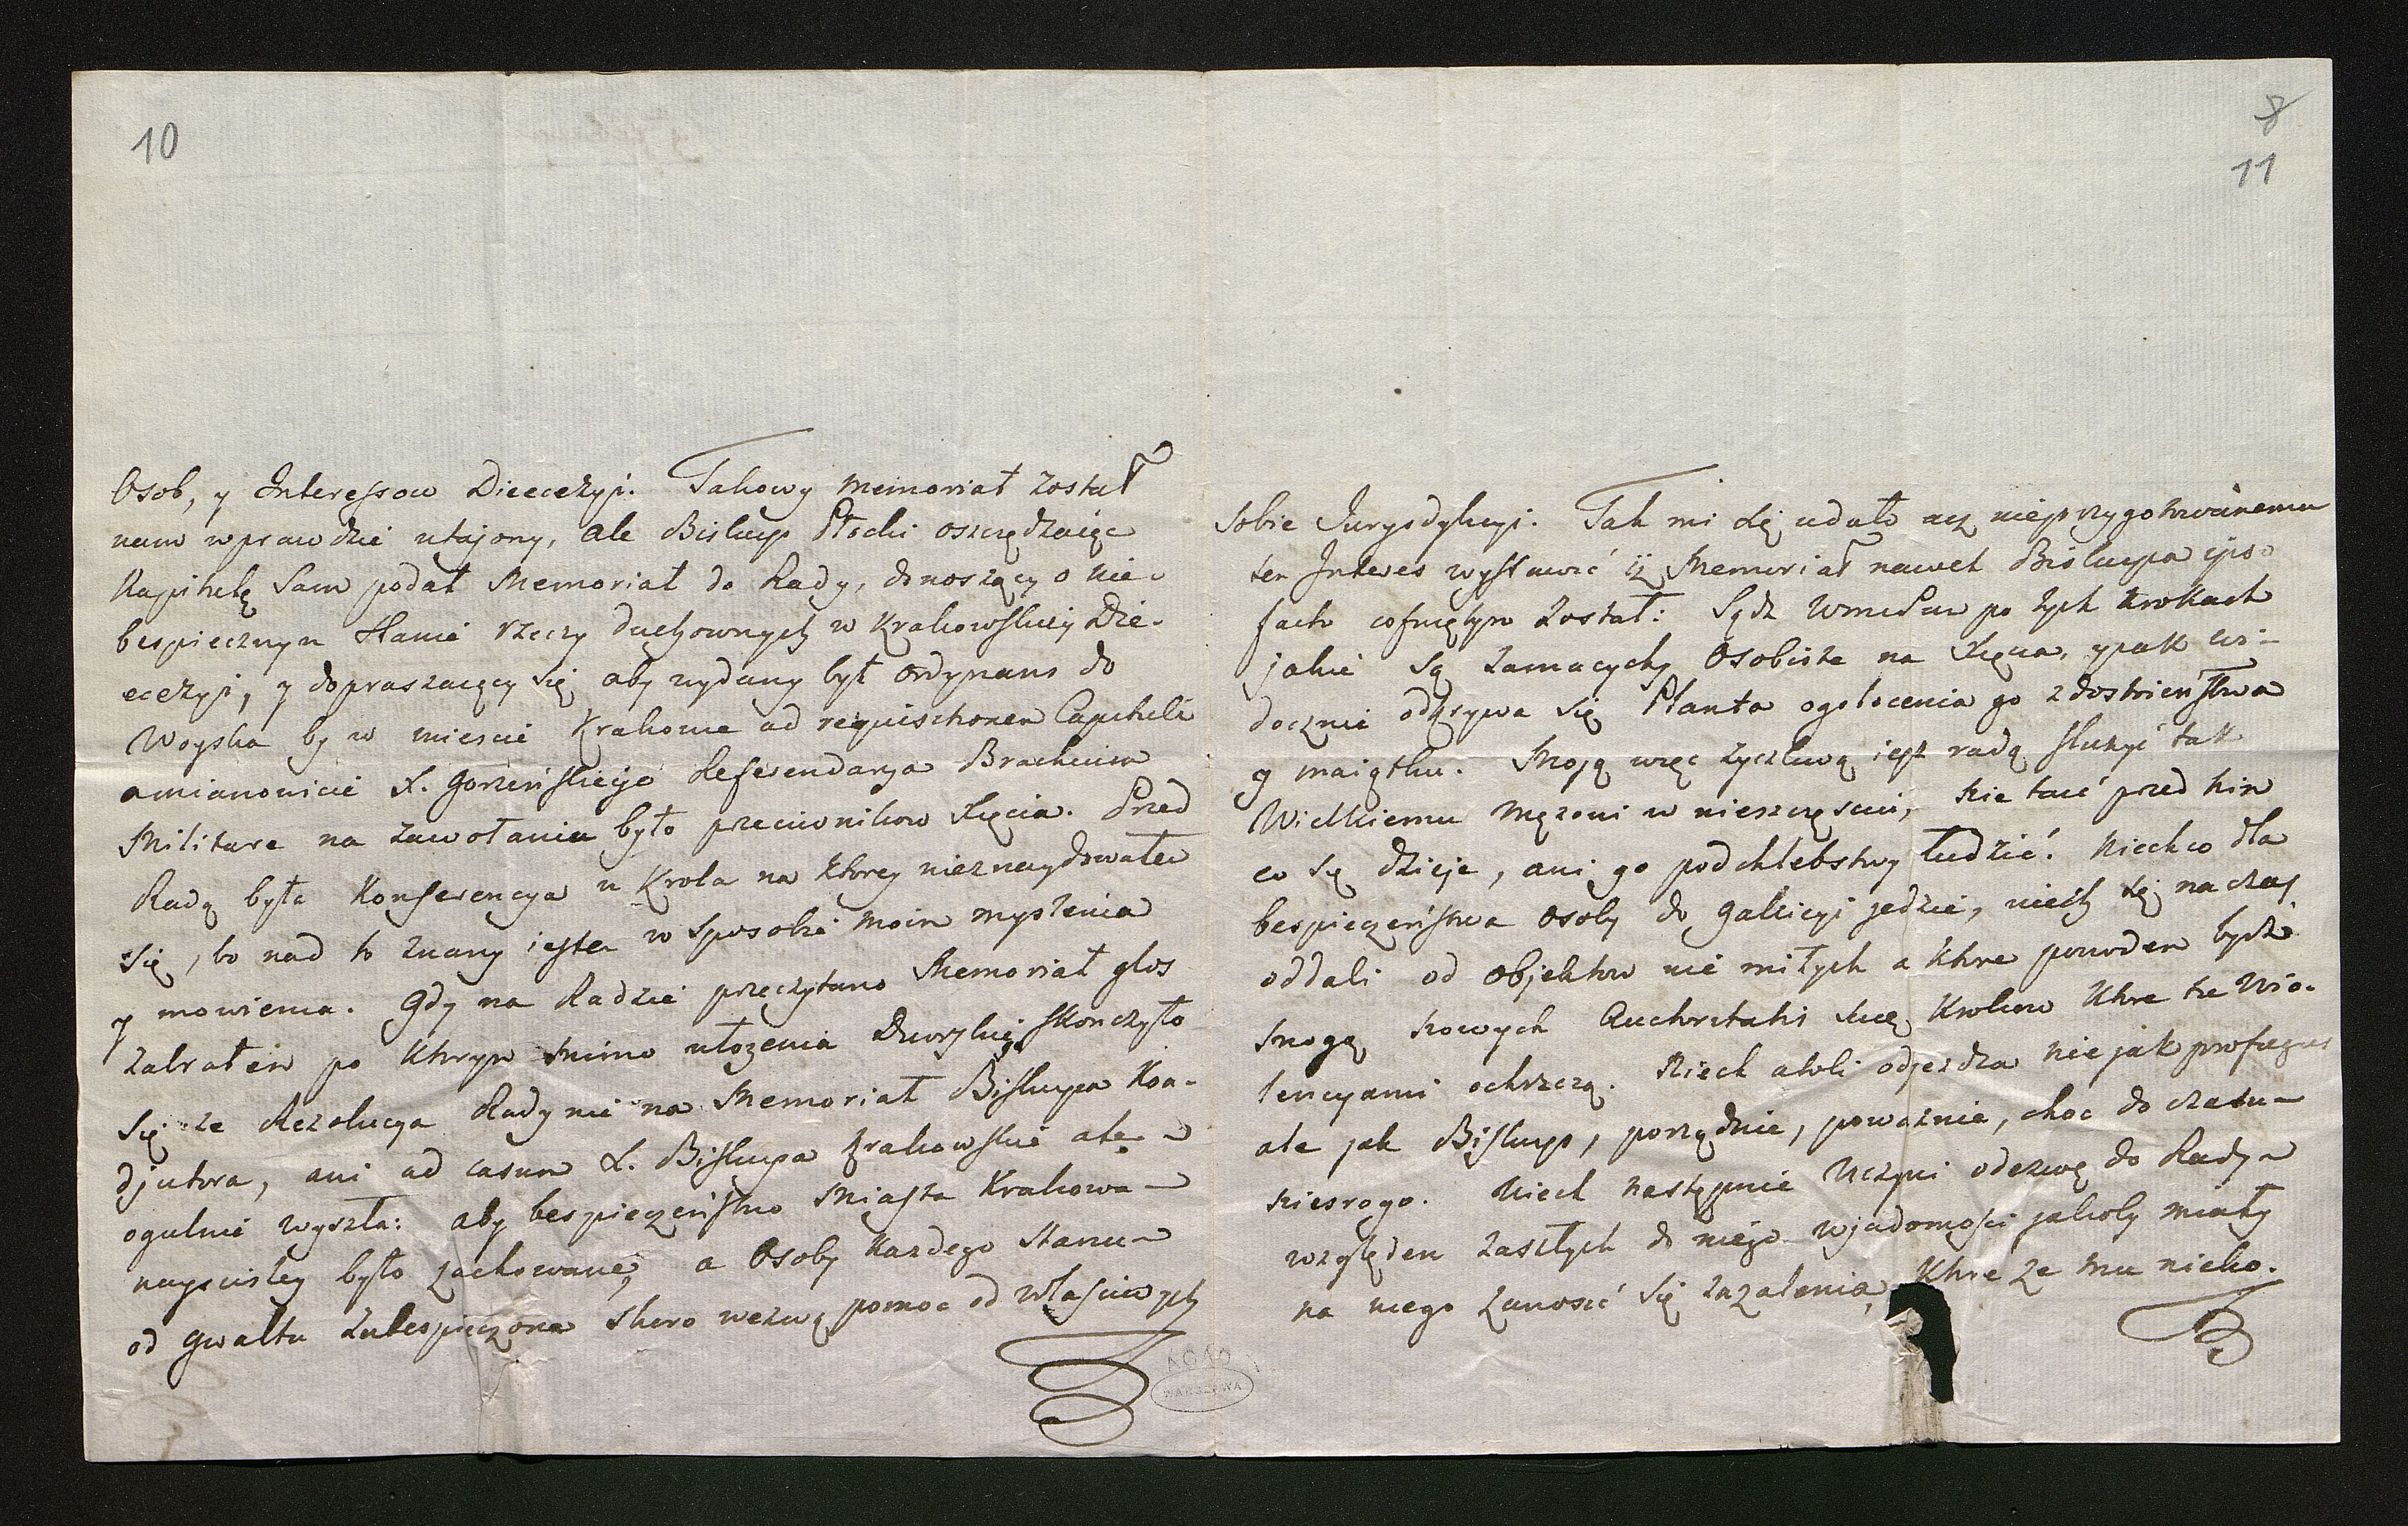 10
Osob, y Interessow Dieecezyi. Takowy Memoriał został
nam wprawdzie utajony, ale Biskup Płocki oszczędzaiąc
Kapitułę Sam podał Memoriał do Rady, donoszący o nie-
bespiecznym Stanie rzeczy duchownych w Krakowskiey Die-
ecezyi, y dopraszaiący się aby wydany był ordynans do
Woyska by w miescie Krakowie ad requisitionem Capituli
a mianowicie X. Gorzeńskiego Referendarza Brachium
Militare na zawołaniu było przeciwnikow Xięcia. Przed
Radą była Konferencya u Krola na ktorey nieznaydowałem
się, bo nad to znany iestem w sposobie moim myslenia
y mowienia. Gdy na Radzie przeczytano Memoriał głos
zabrałem po ktorym mimo ułożenia Dworskie skonczyło
się że Rezolucya Rady nie na Memoriał Biskupa Koa-
djutora, ani ad casum X. Biskupa Krakowskie ale
ogulnie wyszła: aby bespieczeństwo Miasta Krakowa
nayscisley było zachowane, a Osoby każdego Stanu
od gwałtu zabespieczone skoro wezwą pomoc od własciwych
8
11
sobie Jurysdykcyi. Tak mi się udało acz nieprzygotowanemu
ten Interes wystawić iż Memoriał nawet Biskupa ipso
facto cofniętym został: Sądz WmPan po tych krokach
jakie są zamachy Osobiste na Xięcia, ypak wi-
docznie odkrywa się Planta ogołocenia go z dostoieństwa
y maiątku. Moją więc życzliwą iest radą służyć tak
Wielkiemu mężowi w nieszczęsciu, nie taić przed nim
co się dzieje, ani go podchlebstwy łudzić. Niech co dla
bespieczeństwa osoby do Galicyi jedzie, niech się na czas
oddali od objektow nie miłych a ktore powodem bydź
mogą nowych Krokow ktore te Wio-
lencyami ochrzczą. Niech atoli odjezdza nie jak profugus
ale jak Biskup, porządnie, poważnie, choc do czasu
niesrogo. Niech następnie uczyni odezwę do Rady
względem zaszłych do niego wjadomosci jakoby miały
na niego zanosić się zażalenia, ktore że mu nieko-
AGAD
WARSZAWA